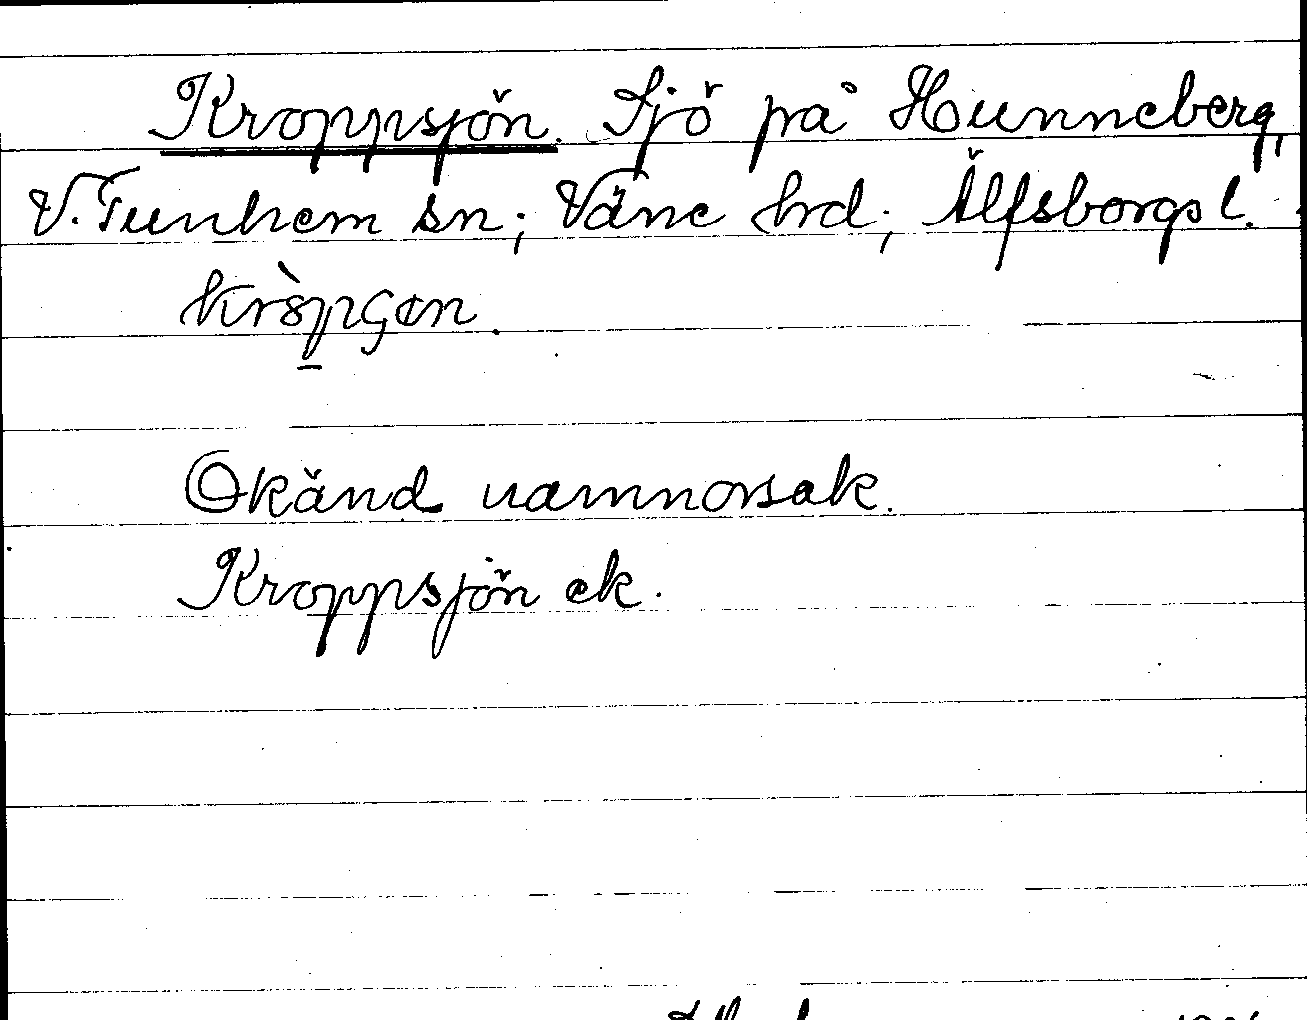 Kroppsjön. Sjö på Hunneberg,
V. Tunhem sn; Väne hrd; Älfsborgs l.
Okänd namnorsak.
Kroppsjön ek.